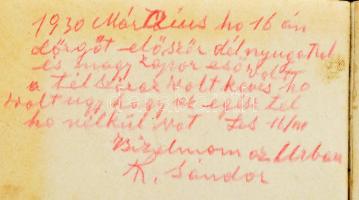 1930 Március ho 16 án
dörgöt először délnyugatrul
es nagy zapor eső volt
a tél száraz volt keves ho
volt ugy hogy az egész tél
ho nélkül vot
Bizalmom az Urban
K. Sándor